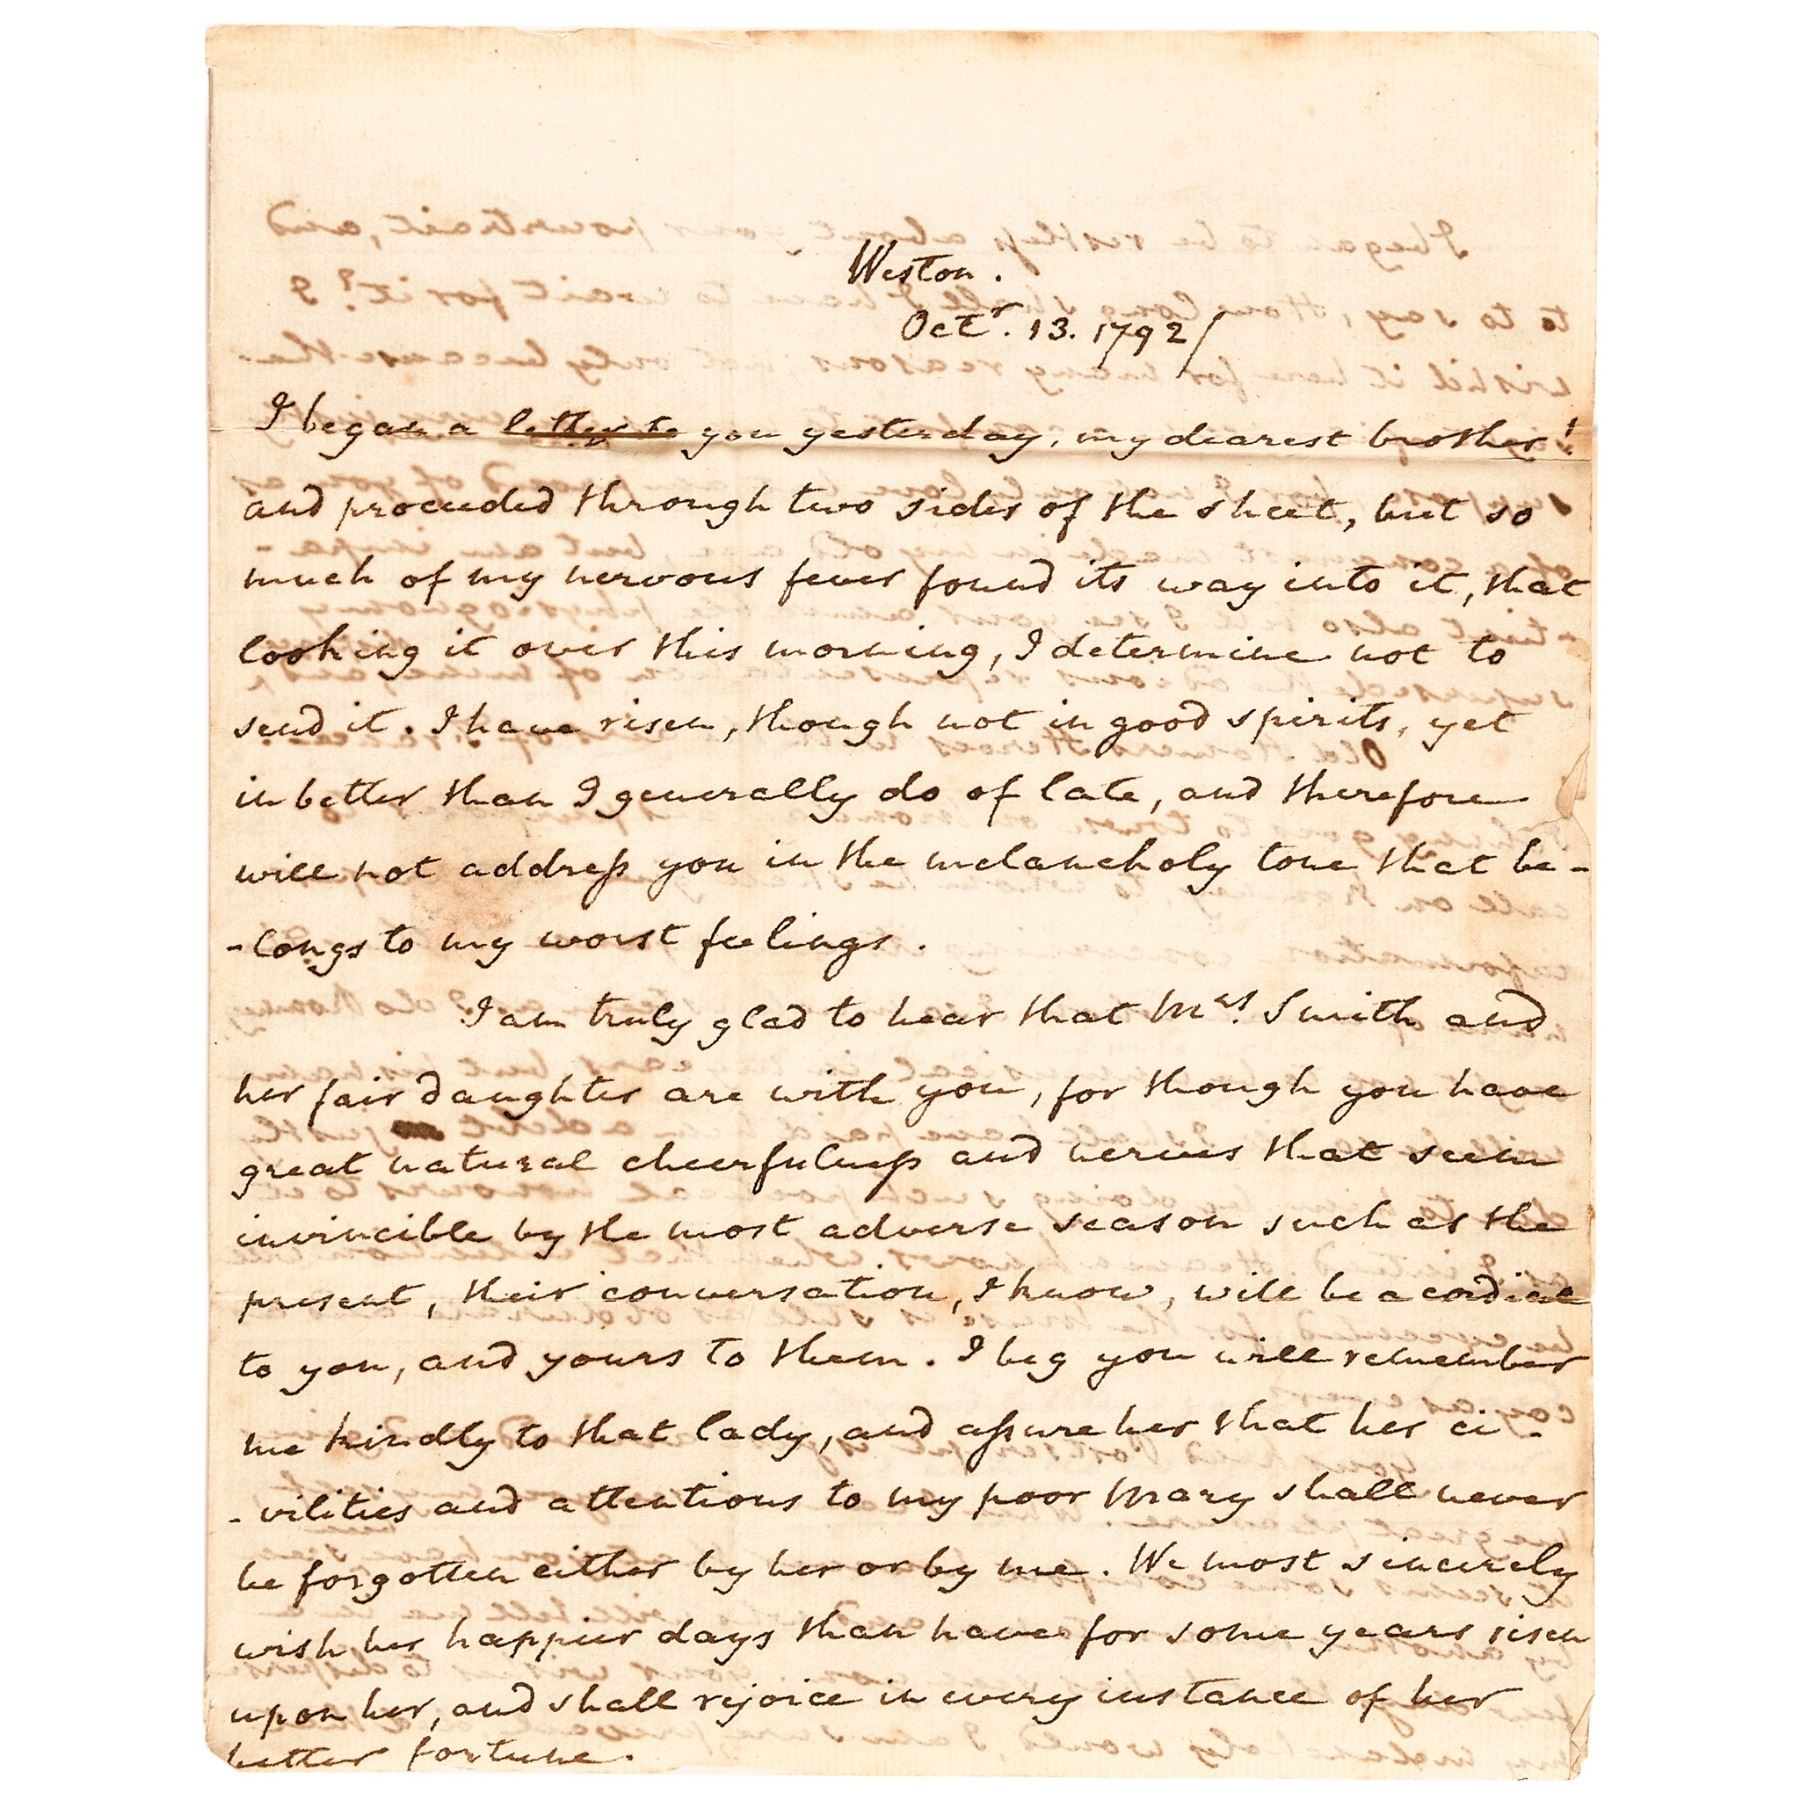 Weston.
Octr. 13. 1792/
I began a letter to you yesterday, my dearest brother!
and proceeded through two sides of the sheet, but so
much of my nervous fever found its way into it, that
looking it over this morning, I determine not to
send it. I have risen, though not in good spirits, yet
in better than I generally do of late, and therefore
will not addreſs you in the melancholy tone that be-
-longs to my worst feelings.
I am truly glad to hear that Mrs. Smith and
her fair daughter are with you, for though you have
great natural cheerfulneſs and nerves that seem
invincible by the most adverse season such as the
present, their conversation, I know, will be a cordial
to you, and yours to them. I beg you will remember
me kindly to that lady, and aſsure her that her ci-
-vilities and attentions to my poor Mary shall never
be forgotten either by her or by me. We most sincerely
wish her happier days than have for some years risen
upon her, and shall rejoice in every instance of her
better fortune.